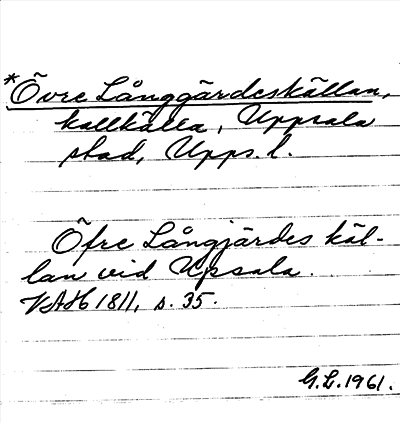 *Övre Långgärdeskällan,
kallkälla, Uppsala
stad, Upps. l.
Öfre Långjärdes käl-
lan vid Upsala.
VAH 1811, s. 35.
G.L. 1961.